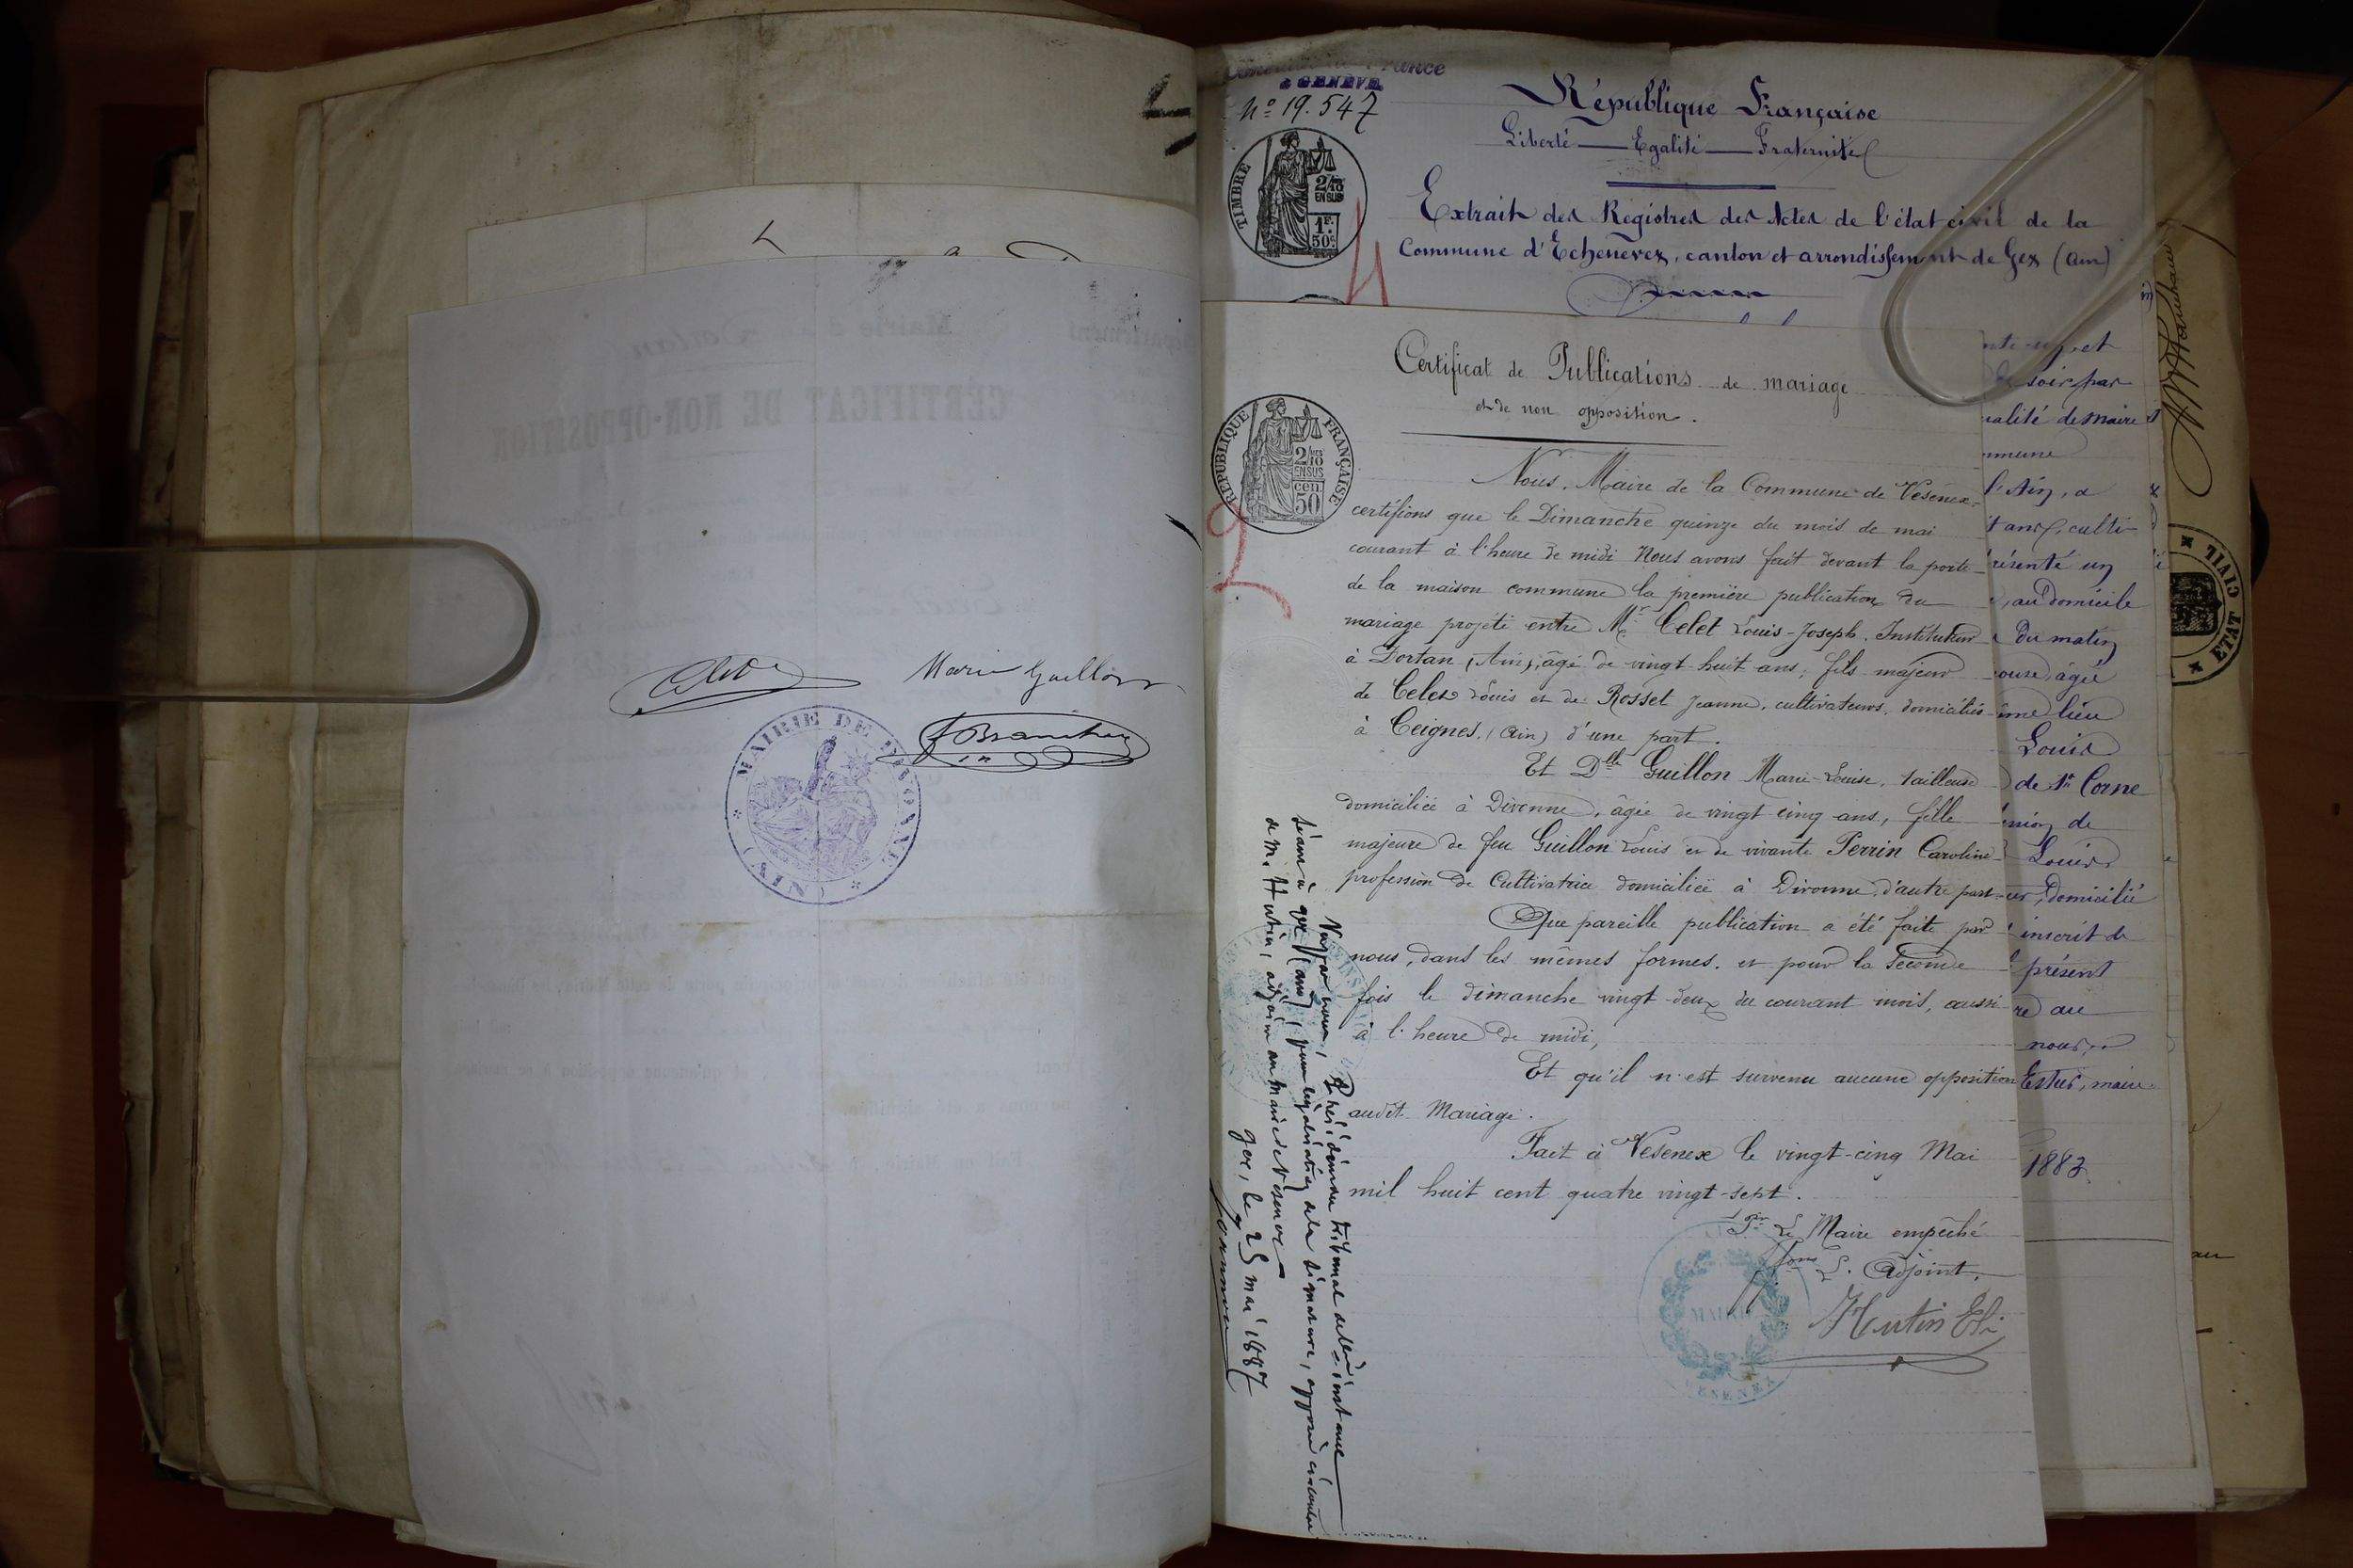 Marie Guillon
MAIRIE DE DIVONNE (AIN)
France
à GENÈVE
No 19.547
République Française
Liberté — Egalité — Fraternité
TIMBRE
2/10
EN SUS
1F.
50c.
4
Extrait des Registres des Actes de l'état civil de la
Commune d'Echenevex, canton et arrondissement de Gex (Ain)
Certificat de Publications de mariage
et de non opposition.
REPUBLIQUE FRANÇAISE
2/10
EN SUS
cen.
50
2
Nous, Maire de la Commune de Vesenex,
certifions que le Dimanche quinze du mois de mai
courant à l'heure de midi Nous avons fait devant la porte
de la maison commune la première publication du
mariage projeté entre Mr Celet Louis-Joseph, Instituteur
à Dortan, (Ain), âgé de vingt huit ans, fils majeur
de Celet Louis et de Rosset Jeanne, cultivateurs, domiciliés
à Ceignes, (Ain) d'une part.
Et Dlle Guillon Marie-Louise, tailleuse
domiciliée à Divonne, âgée de vingt cinq ans, fille
majeure de feu Guillon Louis et de vivante Perrin Caroline
profession de Cultivatrice domiciliée à Divonne, d'autre part
Que pareille publication a été faite par
nous, dans les mêmes formes, et pour la seconde
fois le dimanche vingt-deux du courant mois, aussi
à l'heure de midi,
Et qu'il n'est survenu aucune opposition
audit Mariage.
Fait à Vesenex le vingt-cinq Mai
mil huit cent quatre vingt-sept.
Pr Le Maire empêché
L'Adjoint,
Hutin
MAIRIE
VESENEX
Vu par nous, Président du tribunal de 1ère instance
séant à Gex (Ain), pour légalisation de la signature, apposée ci-contre
de M. Hutin, adjoint au maire de Vesenex
Gex, le 25 mai 1887
et
soir par
ealité de maire
mmune
l'Ain, a
t ans, culti
résenté un
, au domicile
du matin
âgée
ême lieu
Louis
de St Corne
de
Louis
domicilié
inscrit de
présent
re au
nous,
Estier, maire
1883
ETAT CIVIL
au